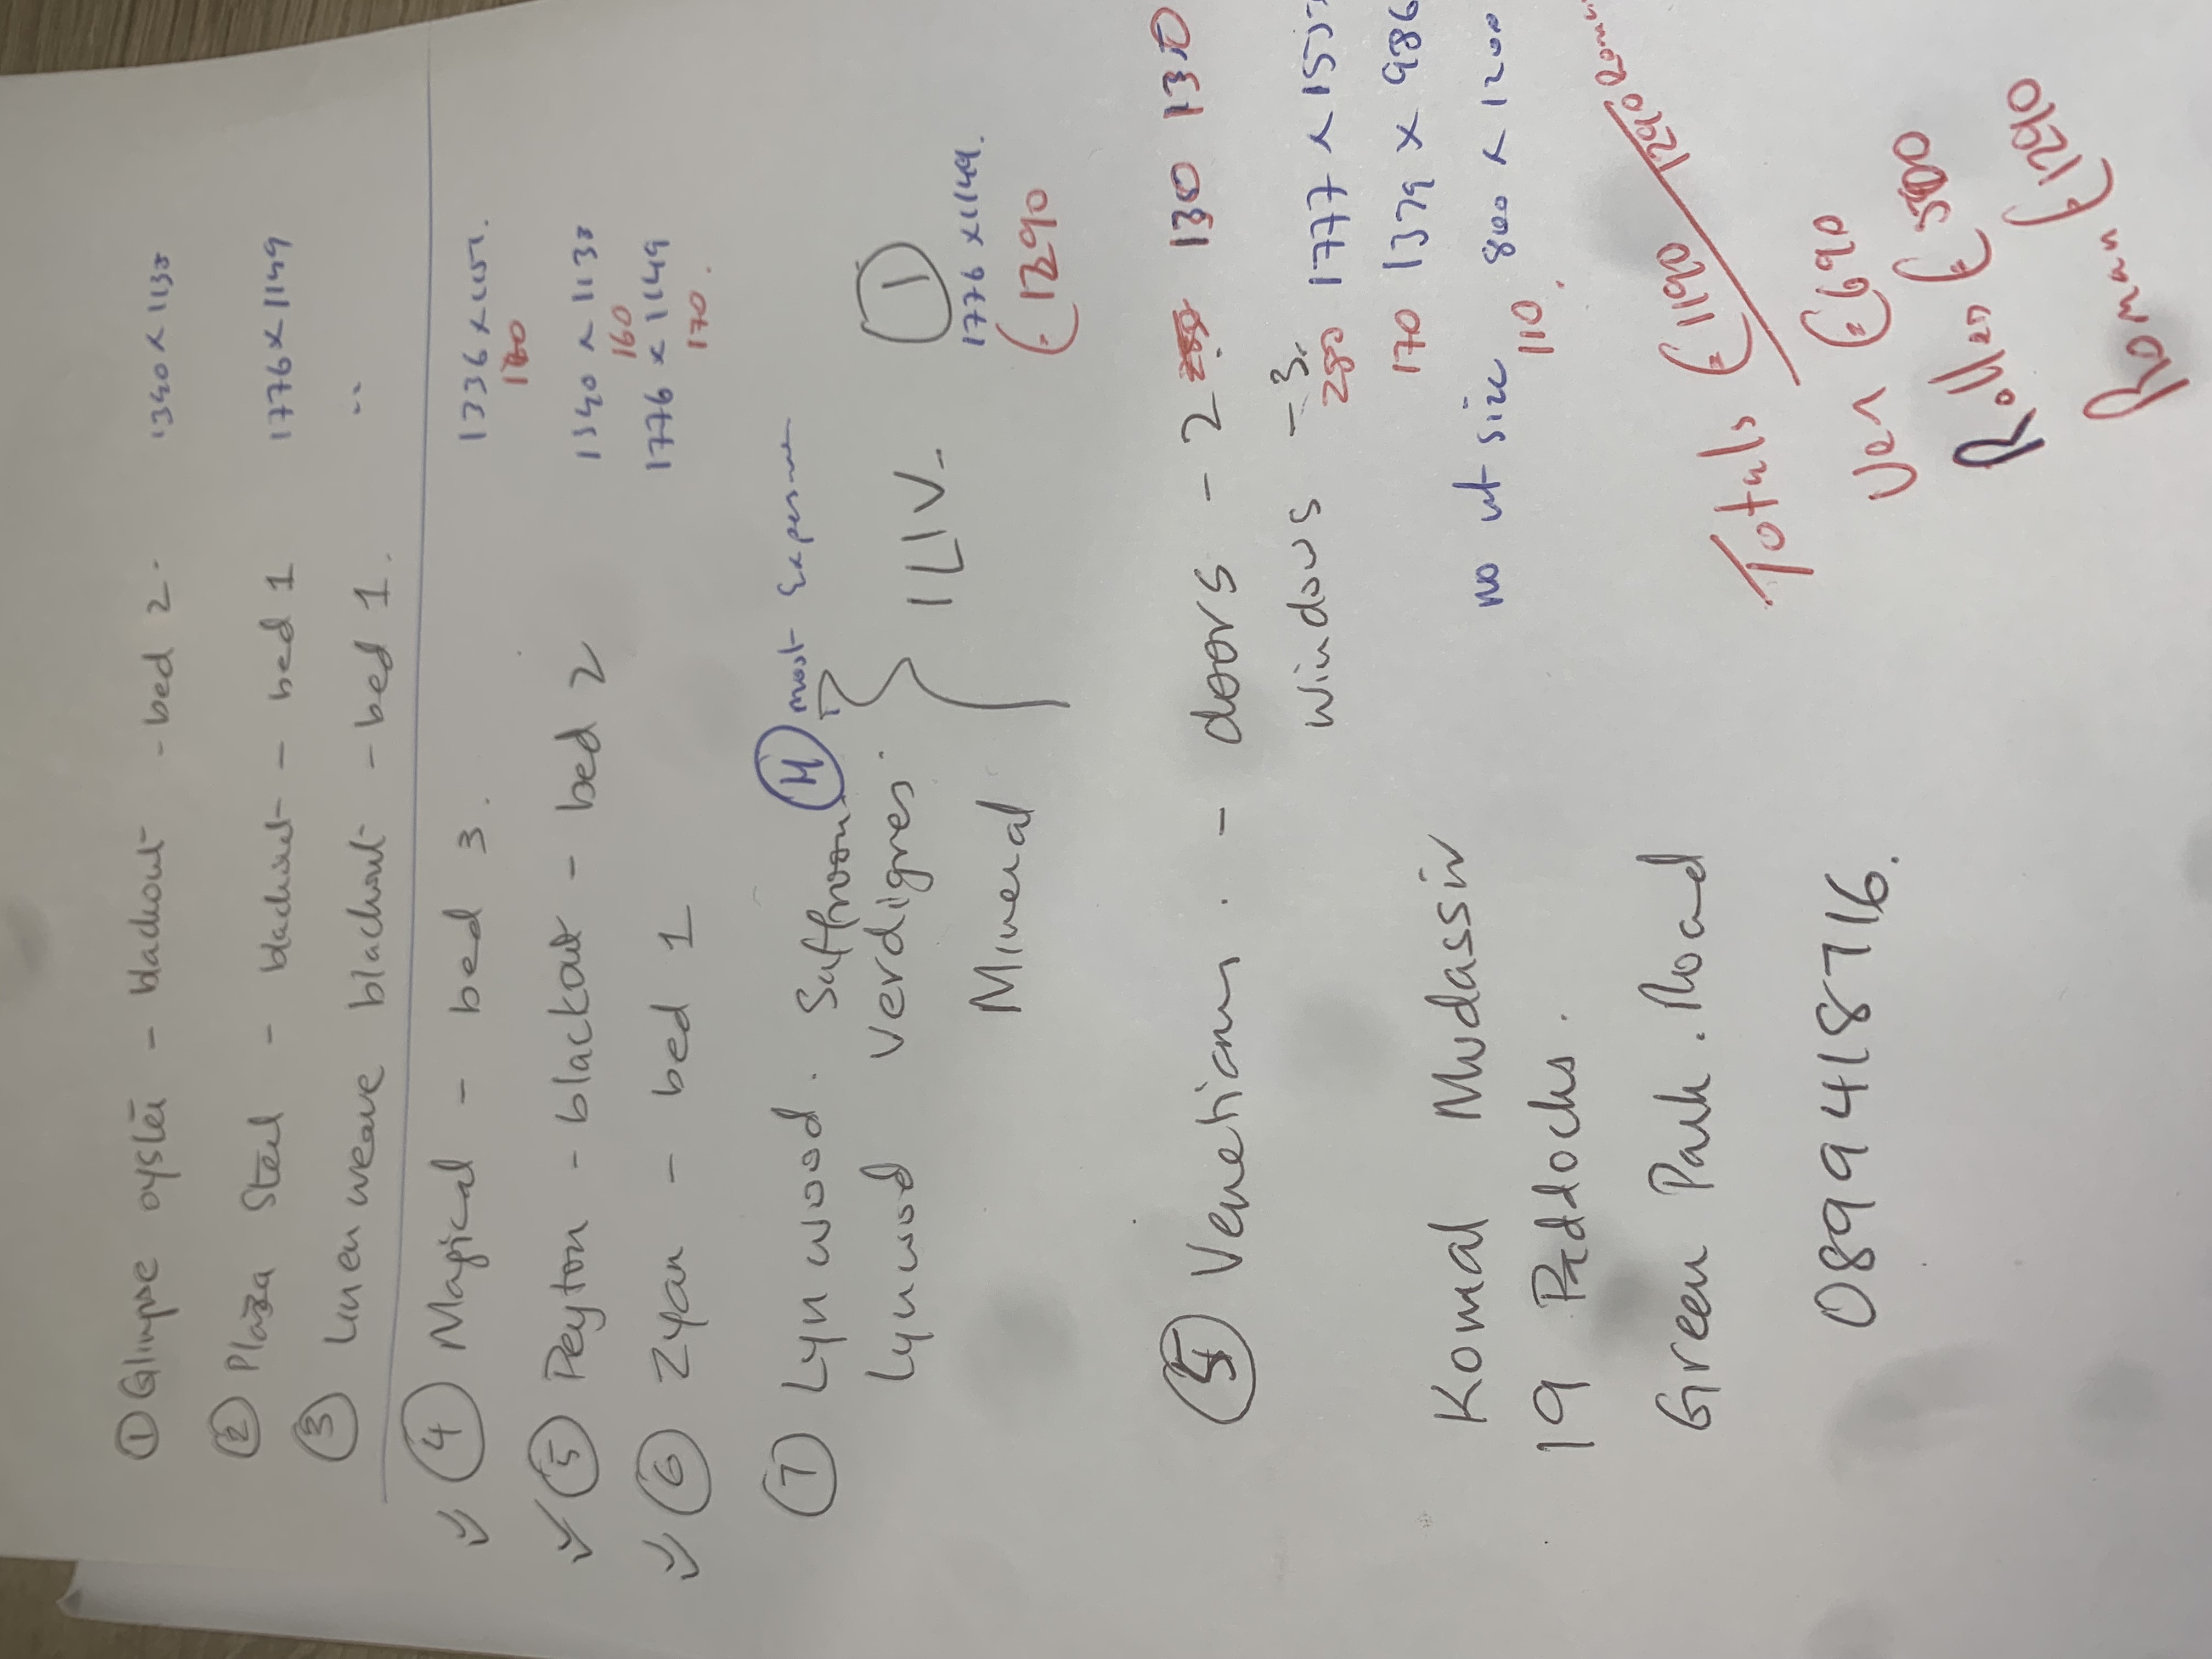 ① Glimpse oyster - blackout - bed 2. 1340 x 1130
② Plaza Steel - blackout - bed 1 1776 x 1149
③ Linen weave blackout - bed 1. "
④ Magical - bed 3. 1336 x
⑤ Peyton - blackout - bed 2 1340 x 1130
160
⑥ Zyan - bed 1 1776 x 1149
170.
⑦ Lynwood. Saffron ④ most
Lynwood verdigres. } ILIV - ①
Mineral 1776 x 1149.
€1290
⑤ Venetians. - doors - 2 130 130
windows - 3.
280 1777 x
170 1374 x 986
no ut size 800 x 1200
110.
Komal Mudassir
19 Paddocks.
Green Park. Road
0899418716.
Totals €1190 1290
Ven €690
Roller € 500
Roman €1290